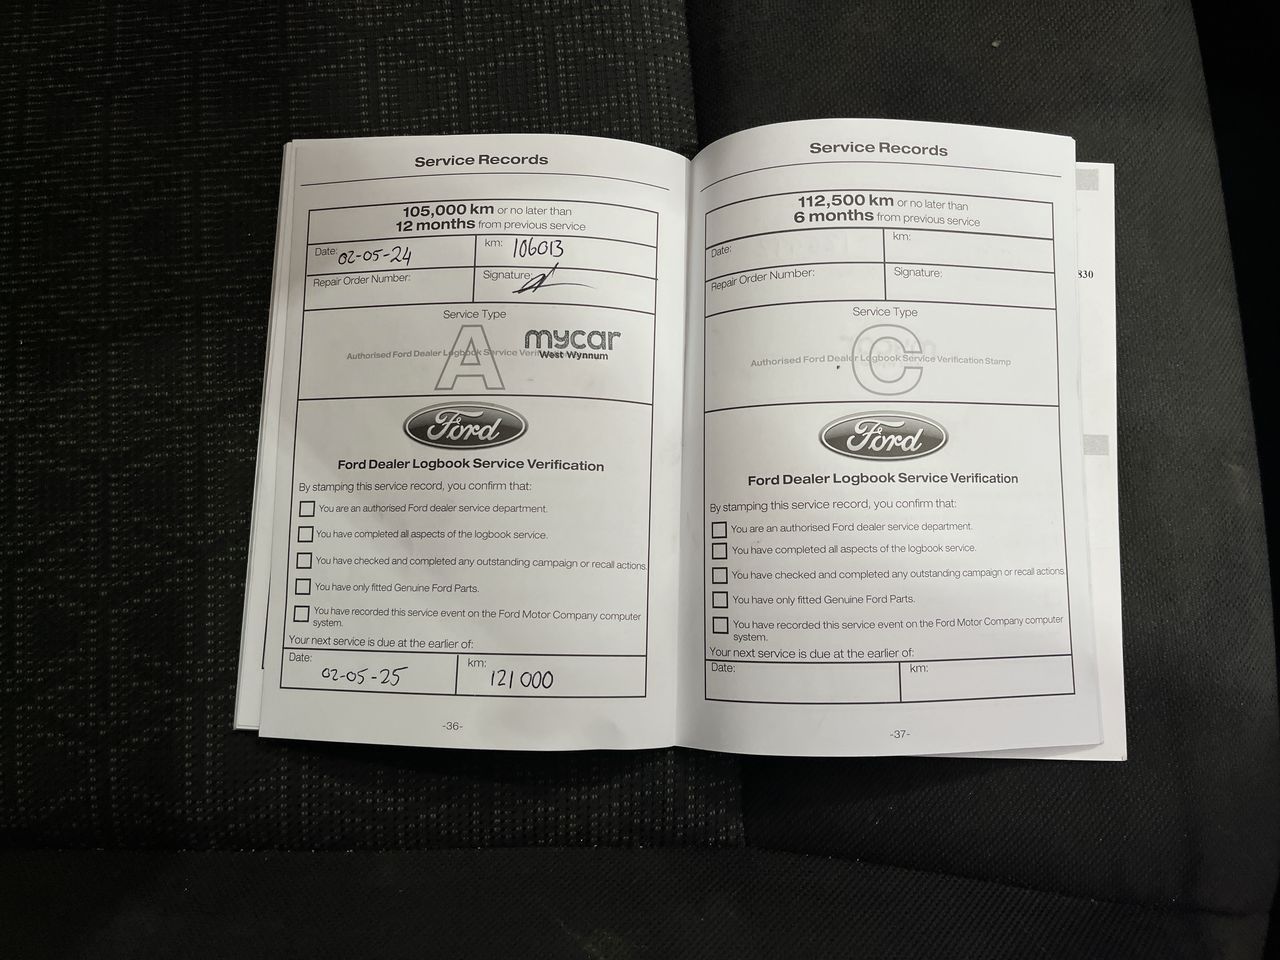 Service Records
105,000 km or no later than
12 months from previous service
Date: 02-05-24
km: 106013
Repair Order Number:
Signature:
Service Type
A
Authorised Ford Dealer Logbook Service Veri
mycar
West Wynnum
Ford
Ford Dealer Logbook Service Verification
By stamping this service record, you confirm that:
You are an authorised Ford dealer service department.
You have completed all aspects of the logbook service.
You have checked and completed any outstanding campaign or recall actions.
You have only fitted Genuine Ford Parts.
You have recorded this service event on the Ford Motor Company computer
system.
Your next service is due at the earlier of:
Date: 02-05-25
km: 121 000
-36-
Service Records
112,500 km or no later than
6 months from previous service
Date:
km:
Repair Order Number:
Signature:
Service Type
C
Authorised Ford Dealer Logbook Service Verification Stamp
Ford
Ford Dealer Logbook Service Verification
By stamping this service record, you confirm that:
You are an authorised Ford dealer service department.
You have completed all aspects of the logbook service.
You have checked and completed any outstanding campaign or recall actions.
You have only fitted Genuine Ford Parts.
You have recorded this service event on the Ford Motor Company computer
system.
Your next service is due at the earlier of:
Date:
km:
-37-
830